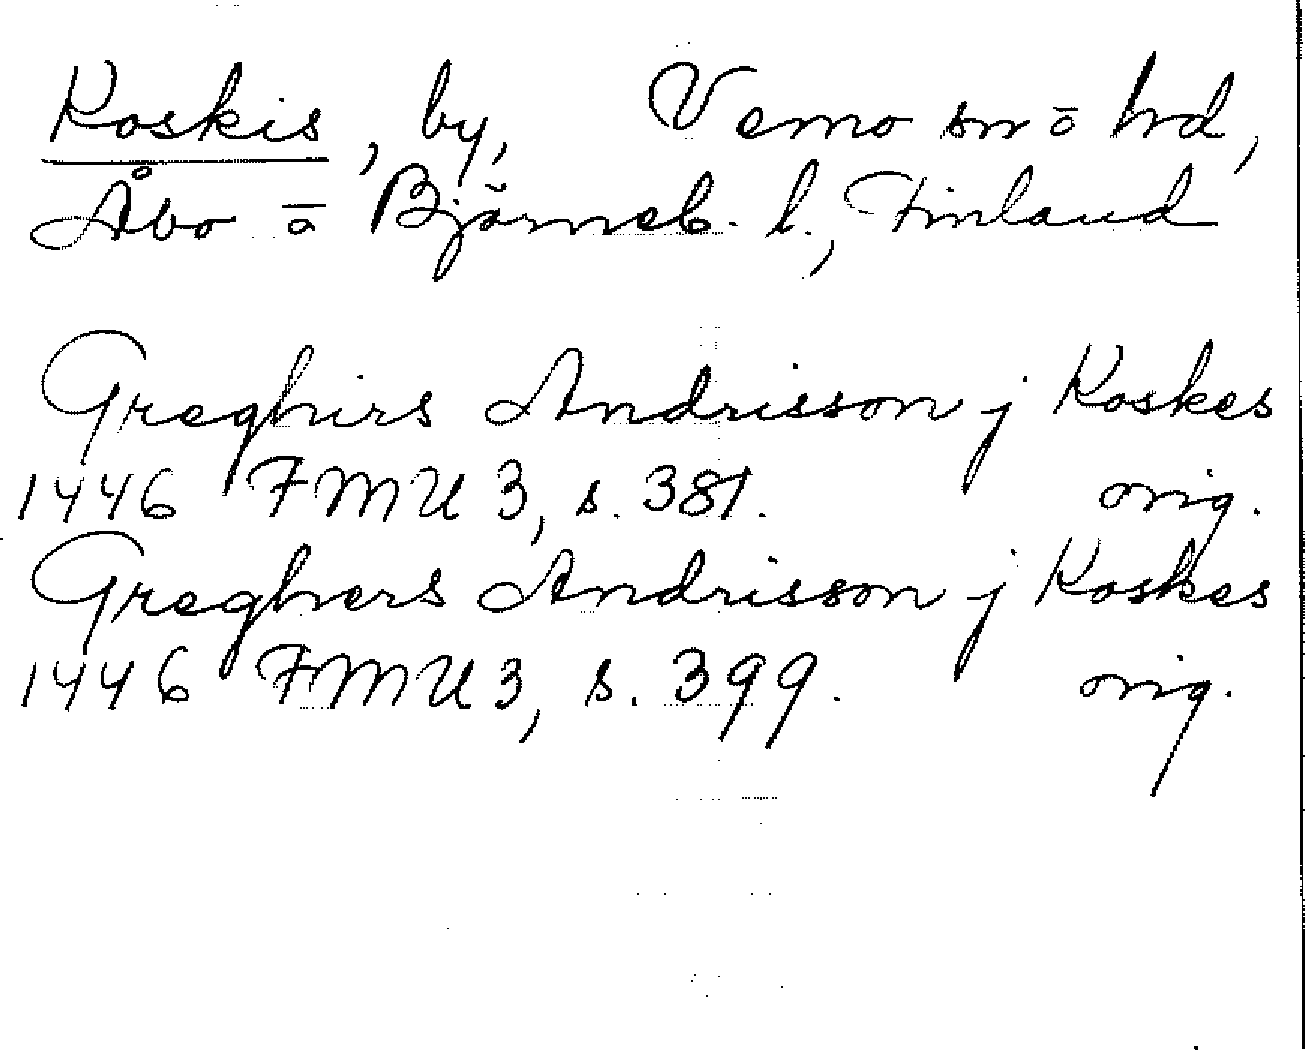 Koskis, by, Vemo sn o hd,
Åbo o Björneb. l., Finland
Greghirs Andrisson j Koskes
1446 FMU 3, s. 381. orig.
Greghers Andrisson j Koskes
1446 FMU 3, s. 399. orig.